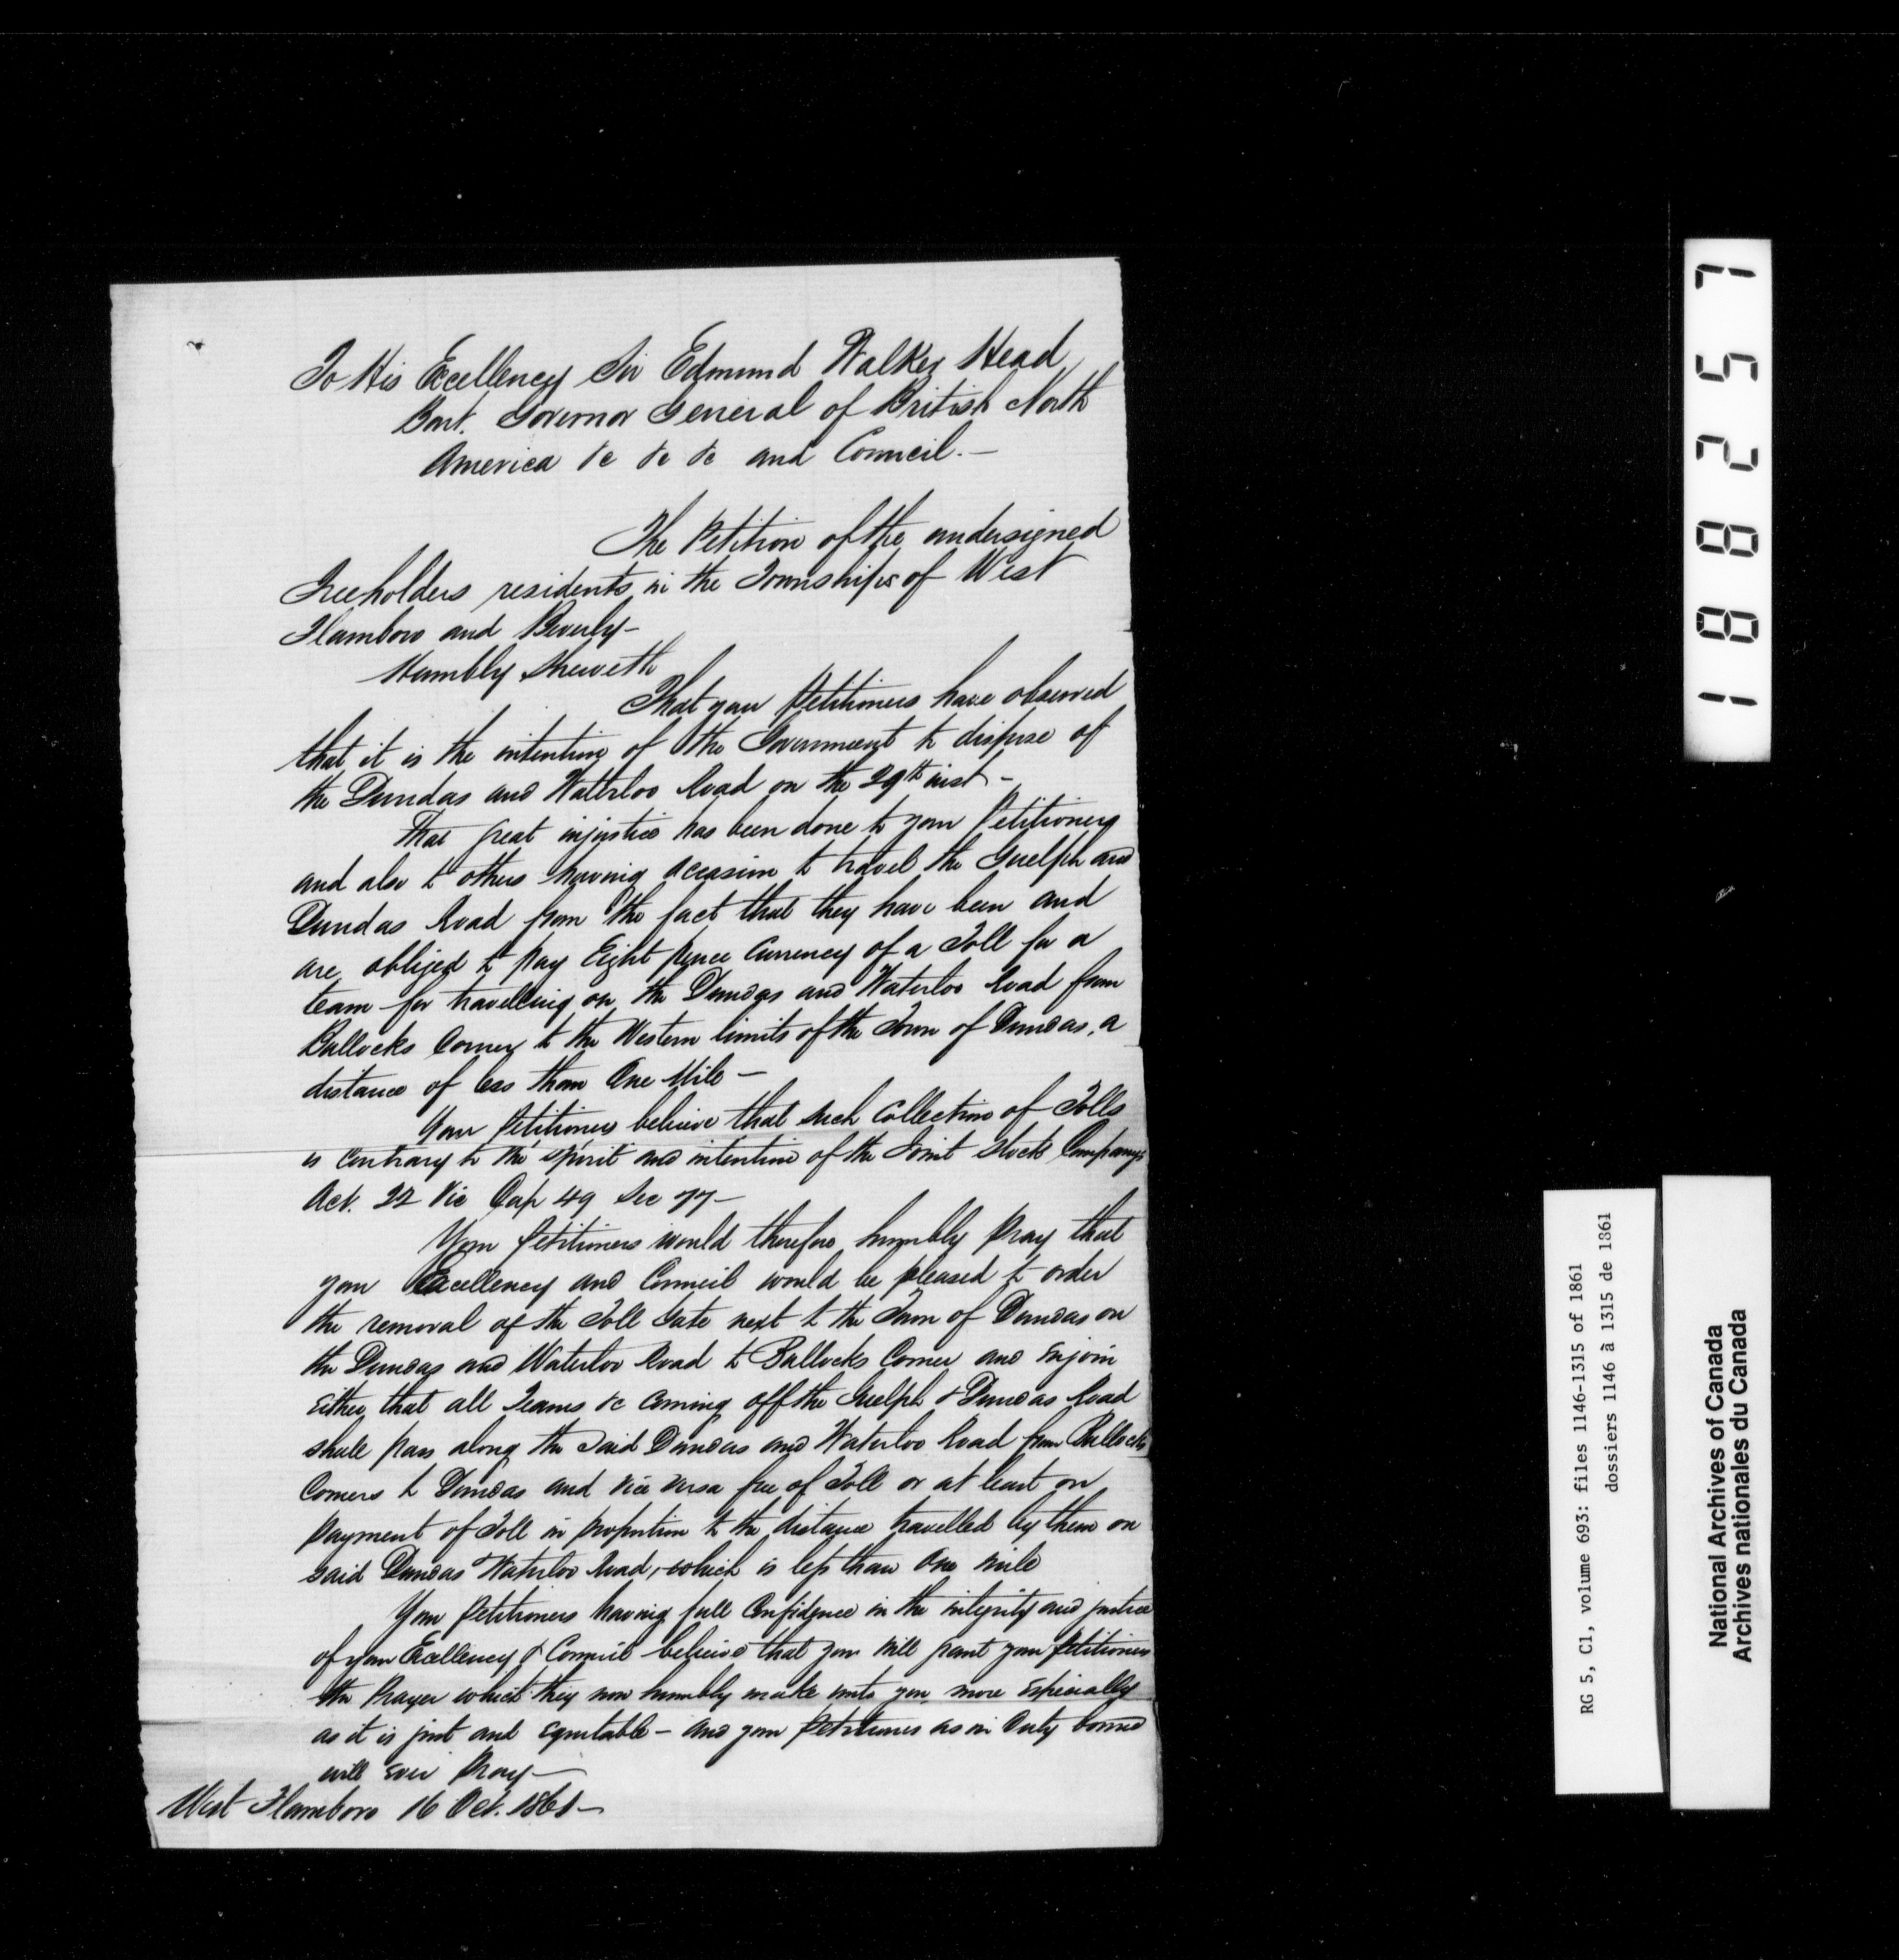 To His Excellency Sir Edmund Walker Head
Bart. Governor General of British North
America &c &c &c and Council.—
The Petition of the undersigned
Freeholders residents in the Townships of West
Flamboro and Beverly—
Humbly Sheweth
That your Petitioners have observed
that it is the intention of the Government to dispose of
the Dundas and Waterloo Road on the 29th inst—
That great injustice has been done to your Petitioners
and also to others having occasion to travel the Guelph and
Dundas Road from the fact that they have been and
are obliged to pay Eight pence Currency of a Toll for a
team for travelling on the Dundas and Waterloo Road from
Bullocks Corner to the Western limits of the Town of Dundas, a
distance of less than One Mile—
Your Petitioners believe that such Collection of Tolls
is contrary to the spirit and intention of the Joint Stock Companys
Act. 22 Vic Cap 49 Sec 77—
Your Petitioners would therefore humbly pray that
your Excellency and Council would be pleased to order
the removal of the Toll Gate next to the Town of Dundas on
the Dundas and Waterloo Road to Bullocks Corner and enjoin
either that all Teams &c coming off the Guelph & Dundas Road
shall pass along the said Dundas and Waterloo Road from Bullocks
Corners to Dundas and vice versa free of Toll or at least on
payment of Toll in proportion to the distance travelled by them on
said Dundas & Waterloo Road, which is less than One mile
Your Petitioners having full Confidence in the integrity and justice
of your Excellency & Council believe that you will grant your Petitioners
the Prayer which they now humbly make unto you more especially
as it is just and equitable— and your Petitioners as in duty bound
will ever Pray—
West Flamboro 16 Oct. 1861—
188257
RG 5, C1, volume 693: files 1146-1315 of 1861
dossiers 1146 à 1315 de 1861
National Archives of Canada
Archives nationales du Canada